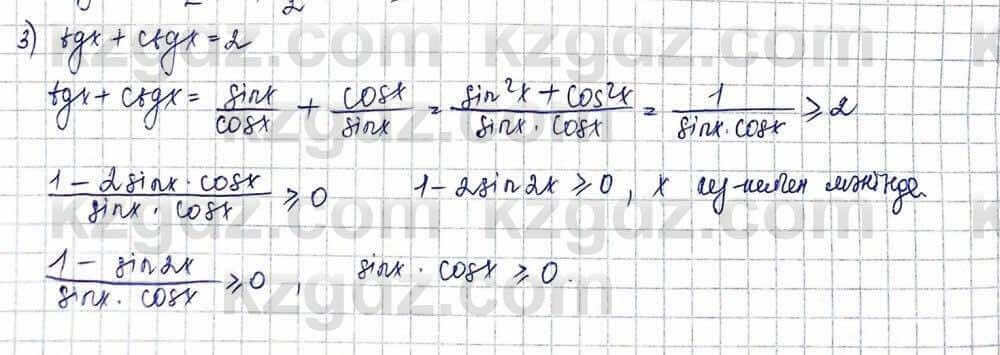 3) tgx + ctgx = 2
tgx + ctgx = sinx/cosx + cosx/sinx = (sin²x + cos²x)/(sinx · cosx) = 1/(sinx · cosx) ≥ 2
(1 - 2sinx · cosx)/(sinx · cosx) ≥ 0    1 - 2sin2x ≥ 0, x кез-келген мәнінде.
(1 - sin2x)/(sinx · cosx) ≥ 0,    sinx · cosx ≥ 0.
kzgdz.com